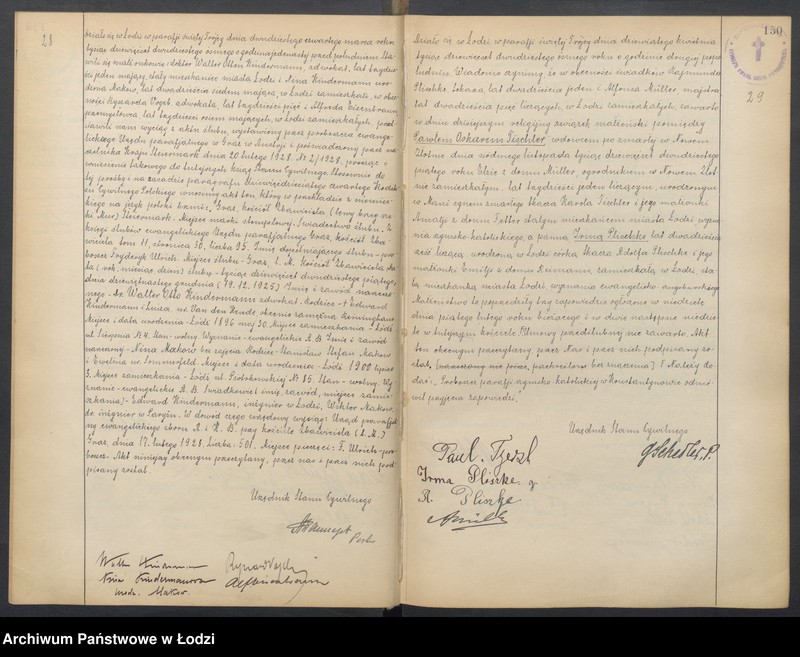 28
Działo się w Łodzi w parafji świętej Trójcy dnia dwudziestego czwartego marca roku
tysiąc dziewięćset dwudziestego ósmego o godzinie jedenastej przed południem. Sta-
wili się małżonkowie: doktor Walter Otton Kindermann, adwokat, lat trzydzie-
ści jeden mający, stały mieszkaniec miasta Łodzi i Nina Kindermann uro-
dzona Makow, lat dwadzieścia siedem mająca, w Łodzi zamieszkali, w obec-
ności Ryszarda Vogel, adwokata, lat trzydzieści pięć i Alfreda
przemysłowca, lat trzydzieści osiem mających, w Łodzi zamieszkałych, przed-
stawili nam wyciąg z aktów ślubu, wystawiony przez proboszcza ewange-
lickiego Urzędu parafjalnego w Graz w Austrji i poświadczony przez na-
czelnika Kraju Steiermark dnia 20 lutego 1928. № 2/1928, prosząc o
wniesienie takowego do tutejszych ksiąg Stanu Cywilnego. Stosownie do
tej prośby i na zasadzie paragrafu dziewięćdziesiątego czwartego Kodek-
su Cywilnego Polskiego wnosimy akt ten, który w przekładzie z niemiec-
kiego na język polski brzmi: Graz, kościół Zbawiciela (lewy brzeg rze-
ki Mur) Steiermark. Miejsce marki stemplowej. Świadectwo ślubu. Z
księgi ślubów ewangelickiego Urzędu parafjalnego Graz, kościół Zba-
wiciela tom 11, stronica 30, liczba 95. Imię dopełniającego ślubu - pro-
boszcz Fryderyk Ulrich. Miejsce ślubu - Graz, l. M. Kościół Zbawiciela. Da-
ta (rok, miesiąc, dzień) ślubu - tysiąc dziewięćset dwudziestego piątego,
dnia dziewiętnastego grudnia (19. 12. 1925). Imię i zawód narzeczo-
nego - Dr. Walter Otto Kindermann adwokat. Rodzice - † Edward
Kindermann i Luiza ur. Van den Hende obecnie zamężna
Miejsce i data urodzenia - Łódź 1896 maj 30. Miejsce zamieszkania - Łódź
ul. № 4. Stan - wolny. Wyznanie - ewangelickie A. B. Imię i zawód
narzeczonej - Nina Makow bez zajęcia. Rodzice - Stanisław Stefan Makow
i Ewelina ur. Sommerfeld. Miejsce i data urodzenia - Łódź 1900 lipiec
3. Miejsce zamieszkania - Łódź ul. Piotrkowska № 85. Stan - wolny. Wy-
znanie - ewangelickie A. B. Świadkowie (imię, zawód, miejsce zamie-
szkania) - Edward Kindermann, inżynier w Łodzi, Wiktor Makow,
dr. inżynier w Paryżu. W dowód czego urzędowy wyciąg: Urząd parafjal-
ny ewangelickiego zboru A. i H. B. przy kościele Zbawiciela (l. M.)
Graz, dnia 17. lutego 1928. Liczba: 501. Miejsce pieczęci: F. Ulrich - pro-
boszcz. - Akt niniejszy obecnym przeczytany, przez nas i przez nich pod-
pisany został.
Urzędnik Stanu Cywilnego
Past.
Nina Kindermanowa
urodz. Makow.
150
29
Działo się w Łodzi w parafji świętej Trójcy dnia dziewiątego kwietnia
tysiąc dziewięćset dwudziestego ósmego roku o godzinie drugiej popo-
łudniu. Wiadomo czynimy, że w obecności świadków Rajmunda
Plischke tkacza, lat dwadzieścia jeden i Alfonsa Müller majstra,
lat dwadzieścia pięć liczących, w Łodzi zamieszkałych, zawarto
w dniu dzisiejszym religijny związek małżeński pomiędzy
Pawłem Oskarem Tieschler, wdowcem po zmarłej w Nowem
Złotnie dnia siódmego listopada tysiąc dziewięćset dwudziestego
piątego roku Elzie z domu Müller, ogrodnikiem w Nowem Złot-
nie zamieszkałym, lat trzydzieści jeden liczącym, urodzonym
w Manii synem zmarłego tkacza Karola Tieschler i jego małżonki
Amalji z domu stałym mieszkańcem miasta Łodzi wyzna-
nia rzymsko-katolickiego, a panną Irmą Plischke, lat dwadzieścia
sześć liczącą, urodzoną w Łodzi córką tkacza Adolfa Plischke i jego
małżonki Emilji z domu Reimann, zamieszkałą w Łodzi, sta-
łą mieszkanką miasta Łodzi, wyznania ewangelicko-augsburskiego.
Małżeństwo to poprzedziły trzy zapowiedzie ogłoszone w niedzielę
dnia piątego lutego roku bieżącego i w dwie następne niedzie-
le w tutejszym kościele. Umowy przedślubnej nie zawarto. Akt
ten obecnym przeczytany, przez Nas i przez nich podpisany zo-
stał. przekreślono bez znaczenia] [Należy do-
dać: Proboszcz parafji rzymsko-katolickiej w Konstantynowie odmó-
wił przyjęcia zapowiedzi.
Urzędnik Stanu Cywilnego
GSchedler. P.
Paul. Tyeszl
Irma Pliszke.
R. Pliszke
Archiwum Państwowe w Łodzi